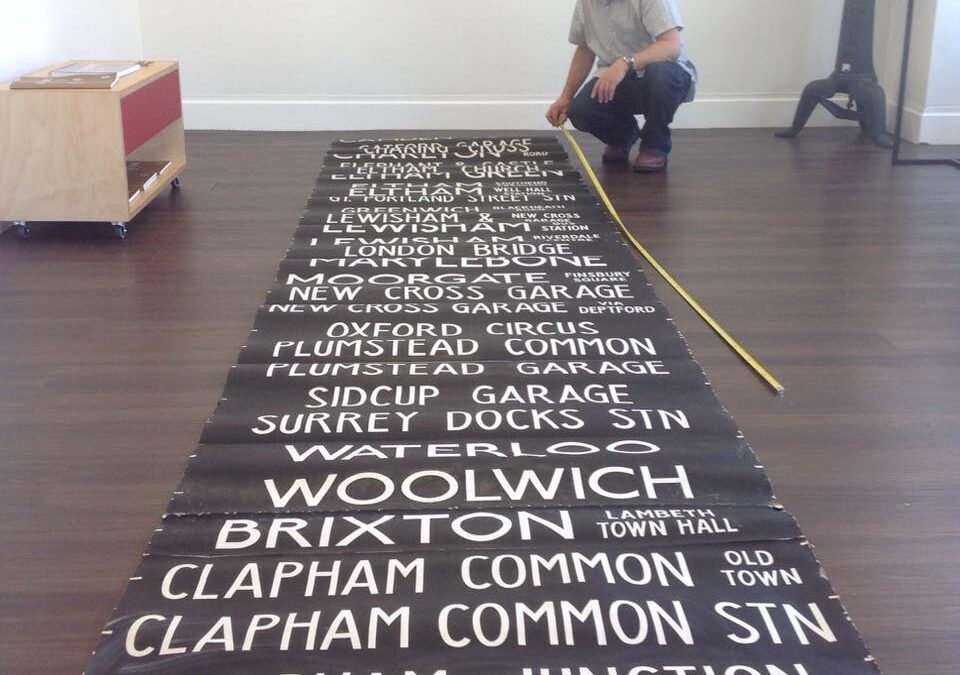 CATERING GARAGE
CHARLTON ROAD
ELEPHANT & CASTLE
ELTHAM GREEN
ELTHAM SOUTHEND
ELTHAM WELL HALL STATION
GT. PORTLAND STREET STN
GREENWICH BLACKHEATH
LEWISHAM & NEW CROSS GARAGE
LEWISHAM STATION
LEWISHAM RIVERDALE CENTRE
LONDON BRIDGE
MARYLEBONE
MOORGATE FINSBURY SQUARE
NEW CROSS GARAGE
NEW CROSS GARAGE VIA DEPTFORD
OXFORD CIRCUS
PLUMSTEAD COMMON
PLUMSTEAD GARAGE
SIDCUP GARAGE
SURREY DOCKS STN
WATERLOO
WOOLWICH
BRIXTON LAMBETH TOWN HALL
CLAPHAM COMMON OLD TOWN
CLAPHAM COMMON STN
CLAPHAM JUNCTION